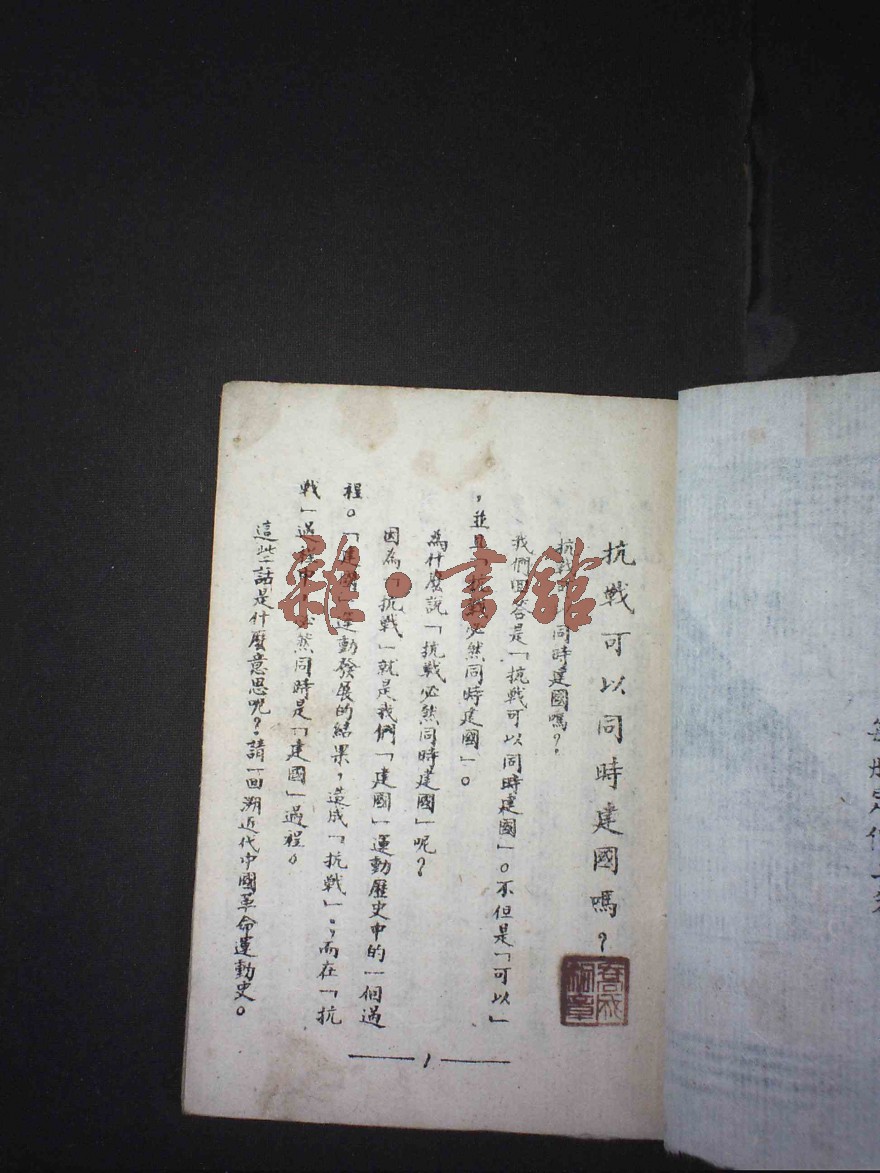 抗戰可以同時建國嗎？
抗戰可以同時建國嗎？
我們回答是「抗戰可以同時建國」。不但是「可以」
，並且「抗戰必然同時建國」。
為什麼說「抗戰必然同時建國」呢？
因為「抗戰」就是我們「建國」運動歷史中的一個過
程。「建國」運動發展的結果，造成「抗戰」；而在「抗
戰」過程中，必然同時是「建國」過程。
這些話是什麼意思呢？請一回溯近代中國革命運動史。
1
雜·書館